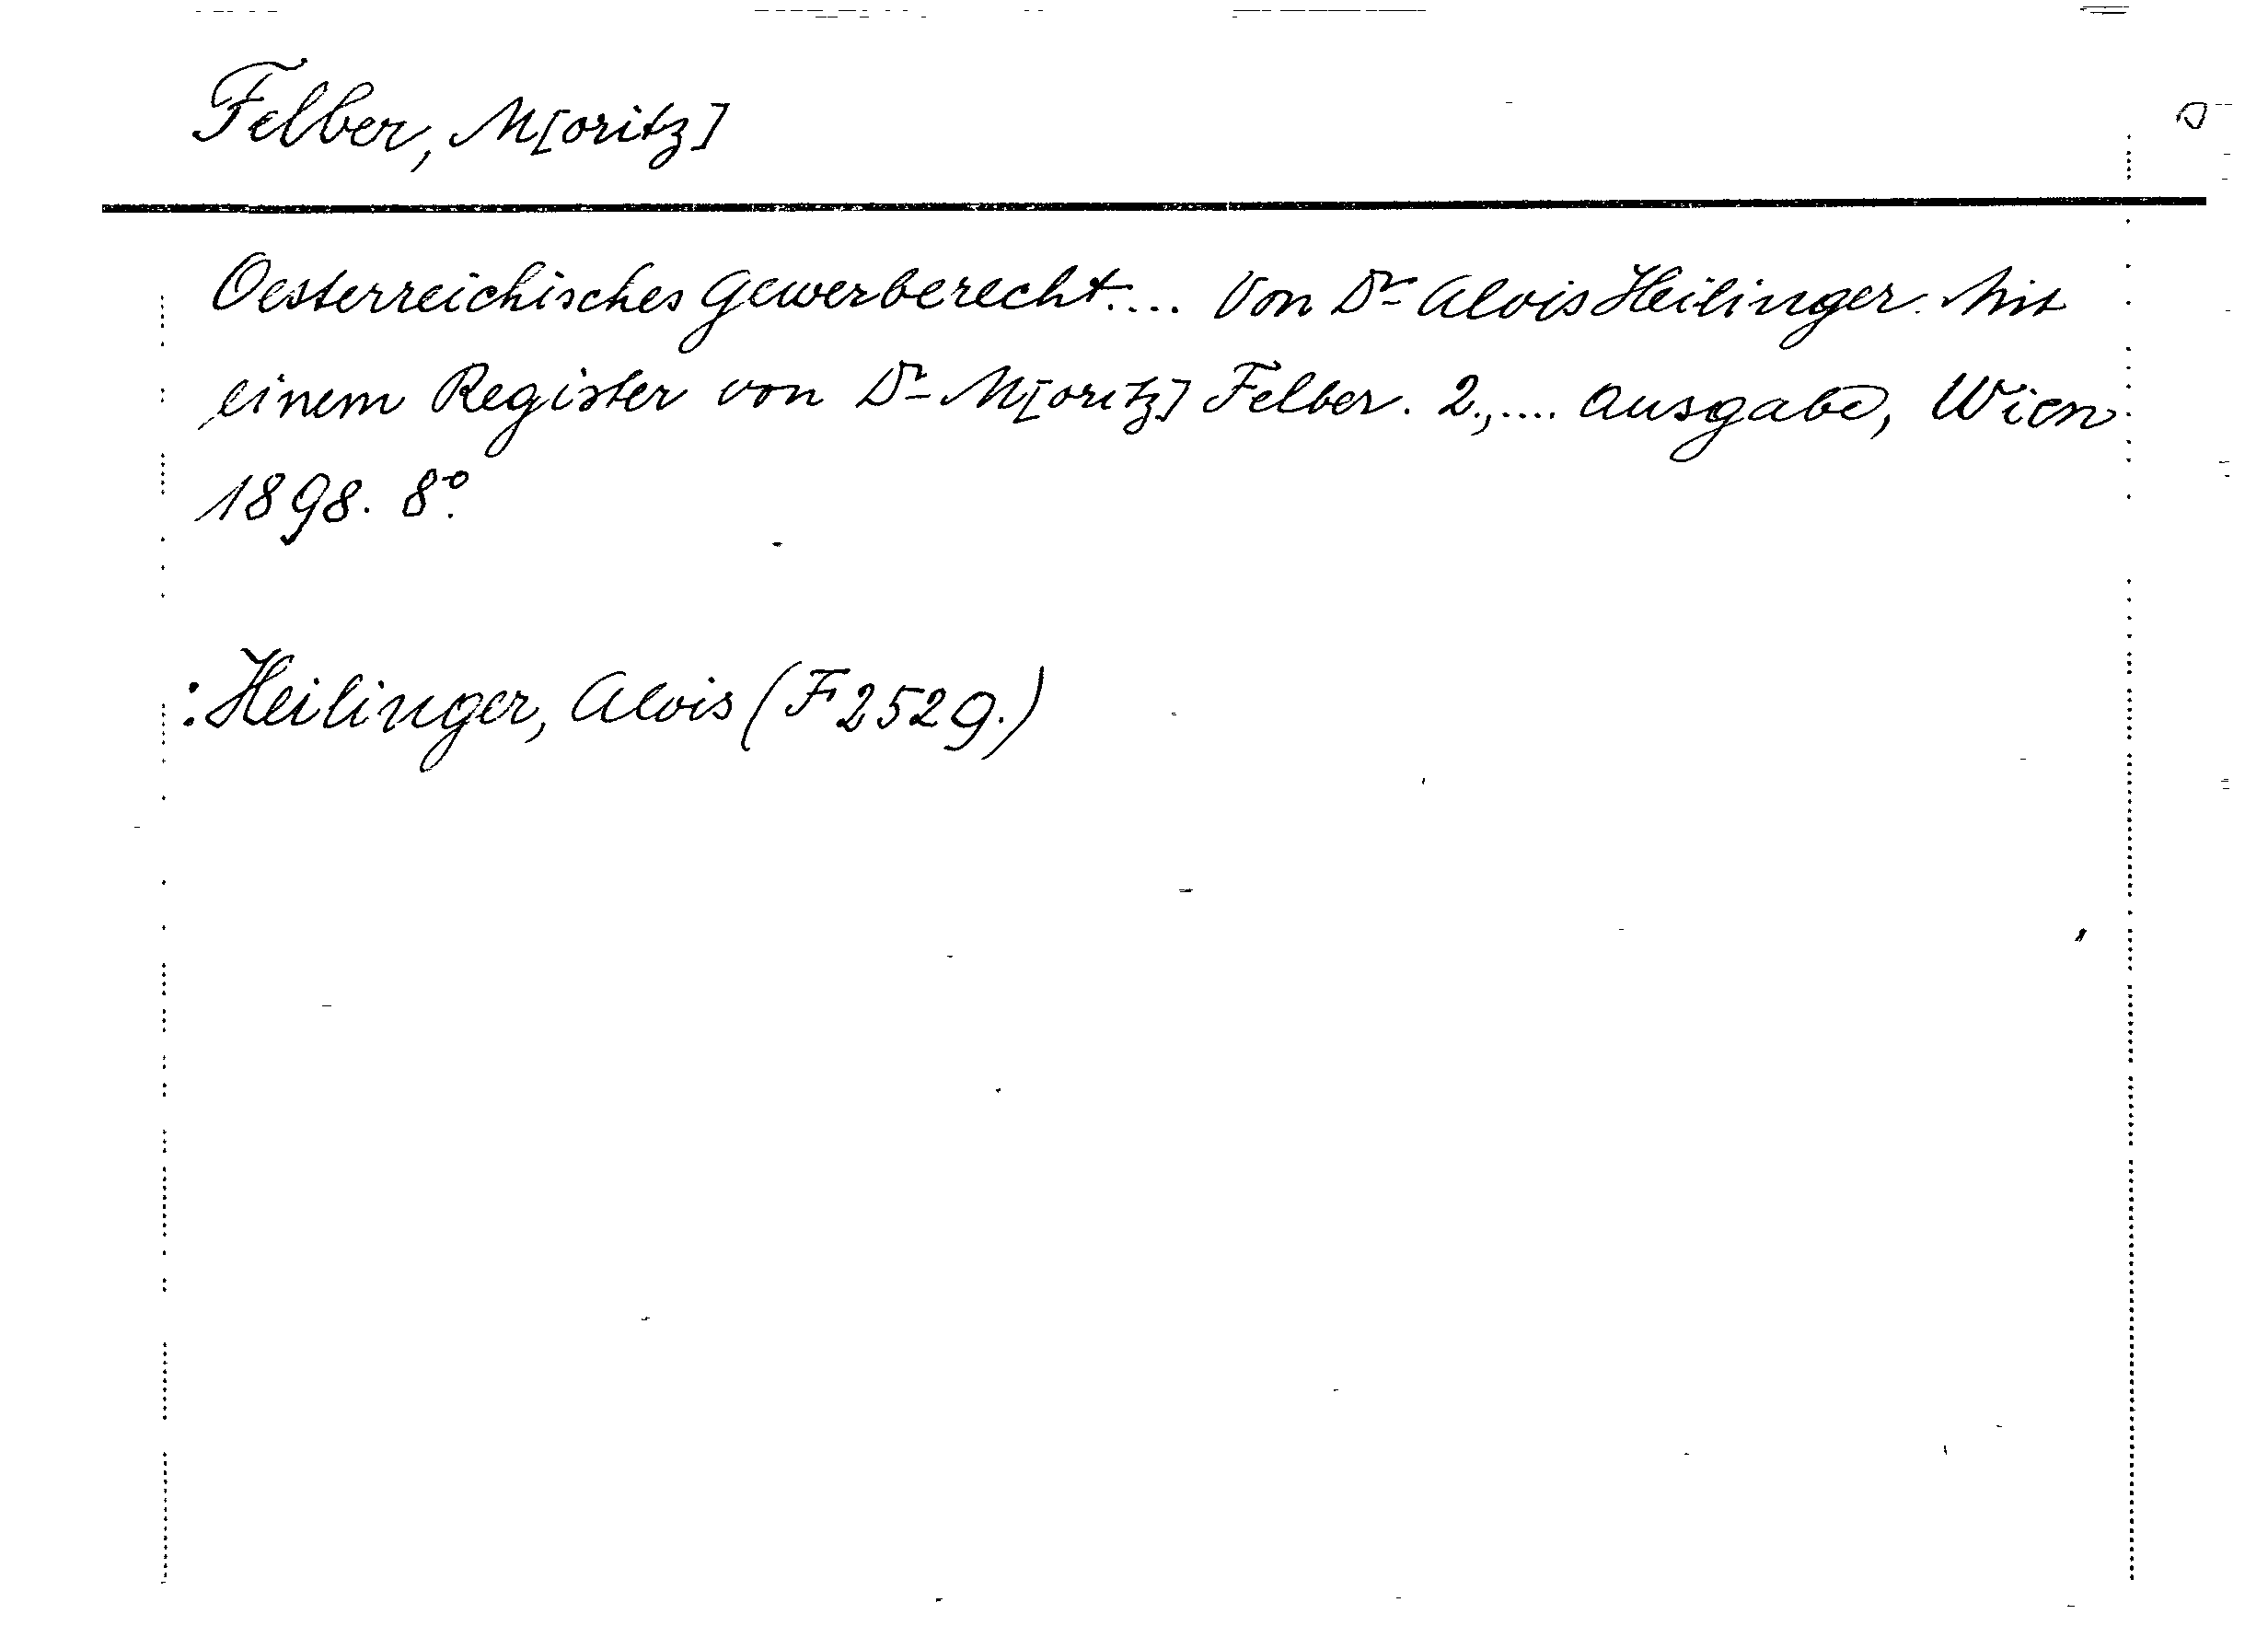 Felber, M[oritz]
Oesterreichisches Gewerberecht.... Von Dr Alois Heilinger. Mit
einem Register von Dr M[oritz] Felber. 2.,.... Ausgabe, Wien
1898. 8°.
: Heilinger, Alois (F 2529.)